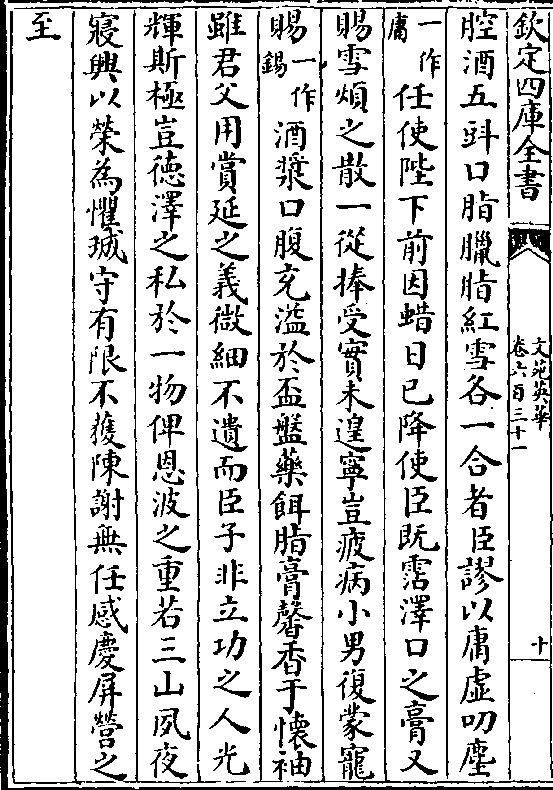 欽定四庫全書
文苑英華
卷六百三十一
十
腔酒五㪷口脂臘脂紅雪各一合者臣謬以庸虛叨塵
一作庸任使陛下前因蜡日已降使臣既霑澤口之膏又
賜雪煩之散一從捧受實未遑寧豈疲病小男復蒙寵
賜一作錫酒漿口腹充溢於盃盤藥餌脂膏馨香于懷袖
雖君父用賞延之義微細不遺而臣子非立功之人光
輝斯極豈德澤之私於一物俾恩波之重若三山夙夜
寢興以榮為懼瑊守有限不獲陳謝無任感慶屏營之
至